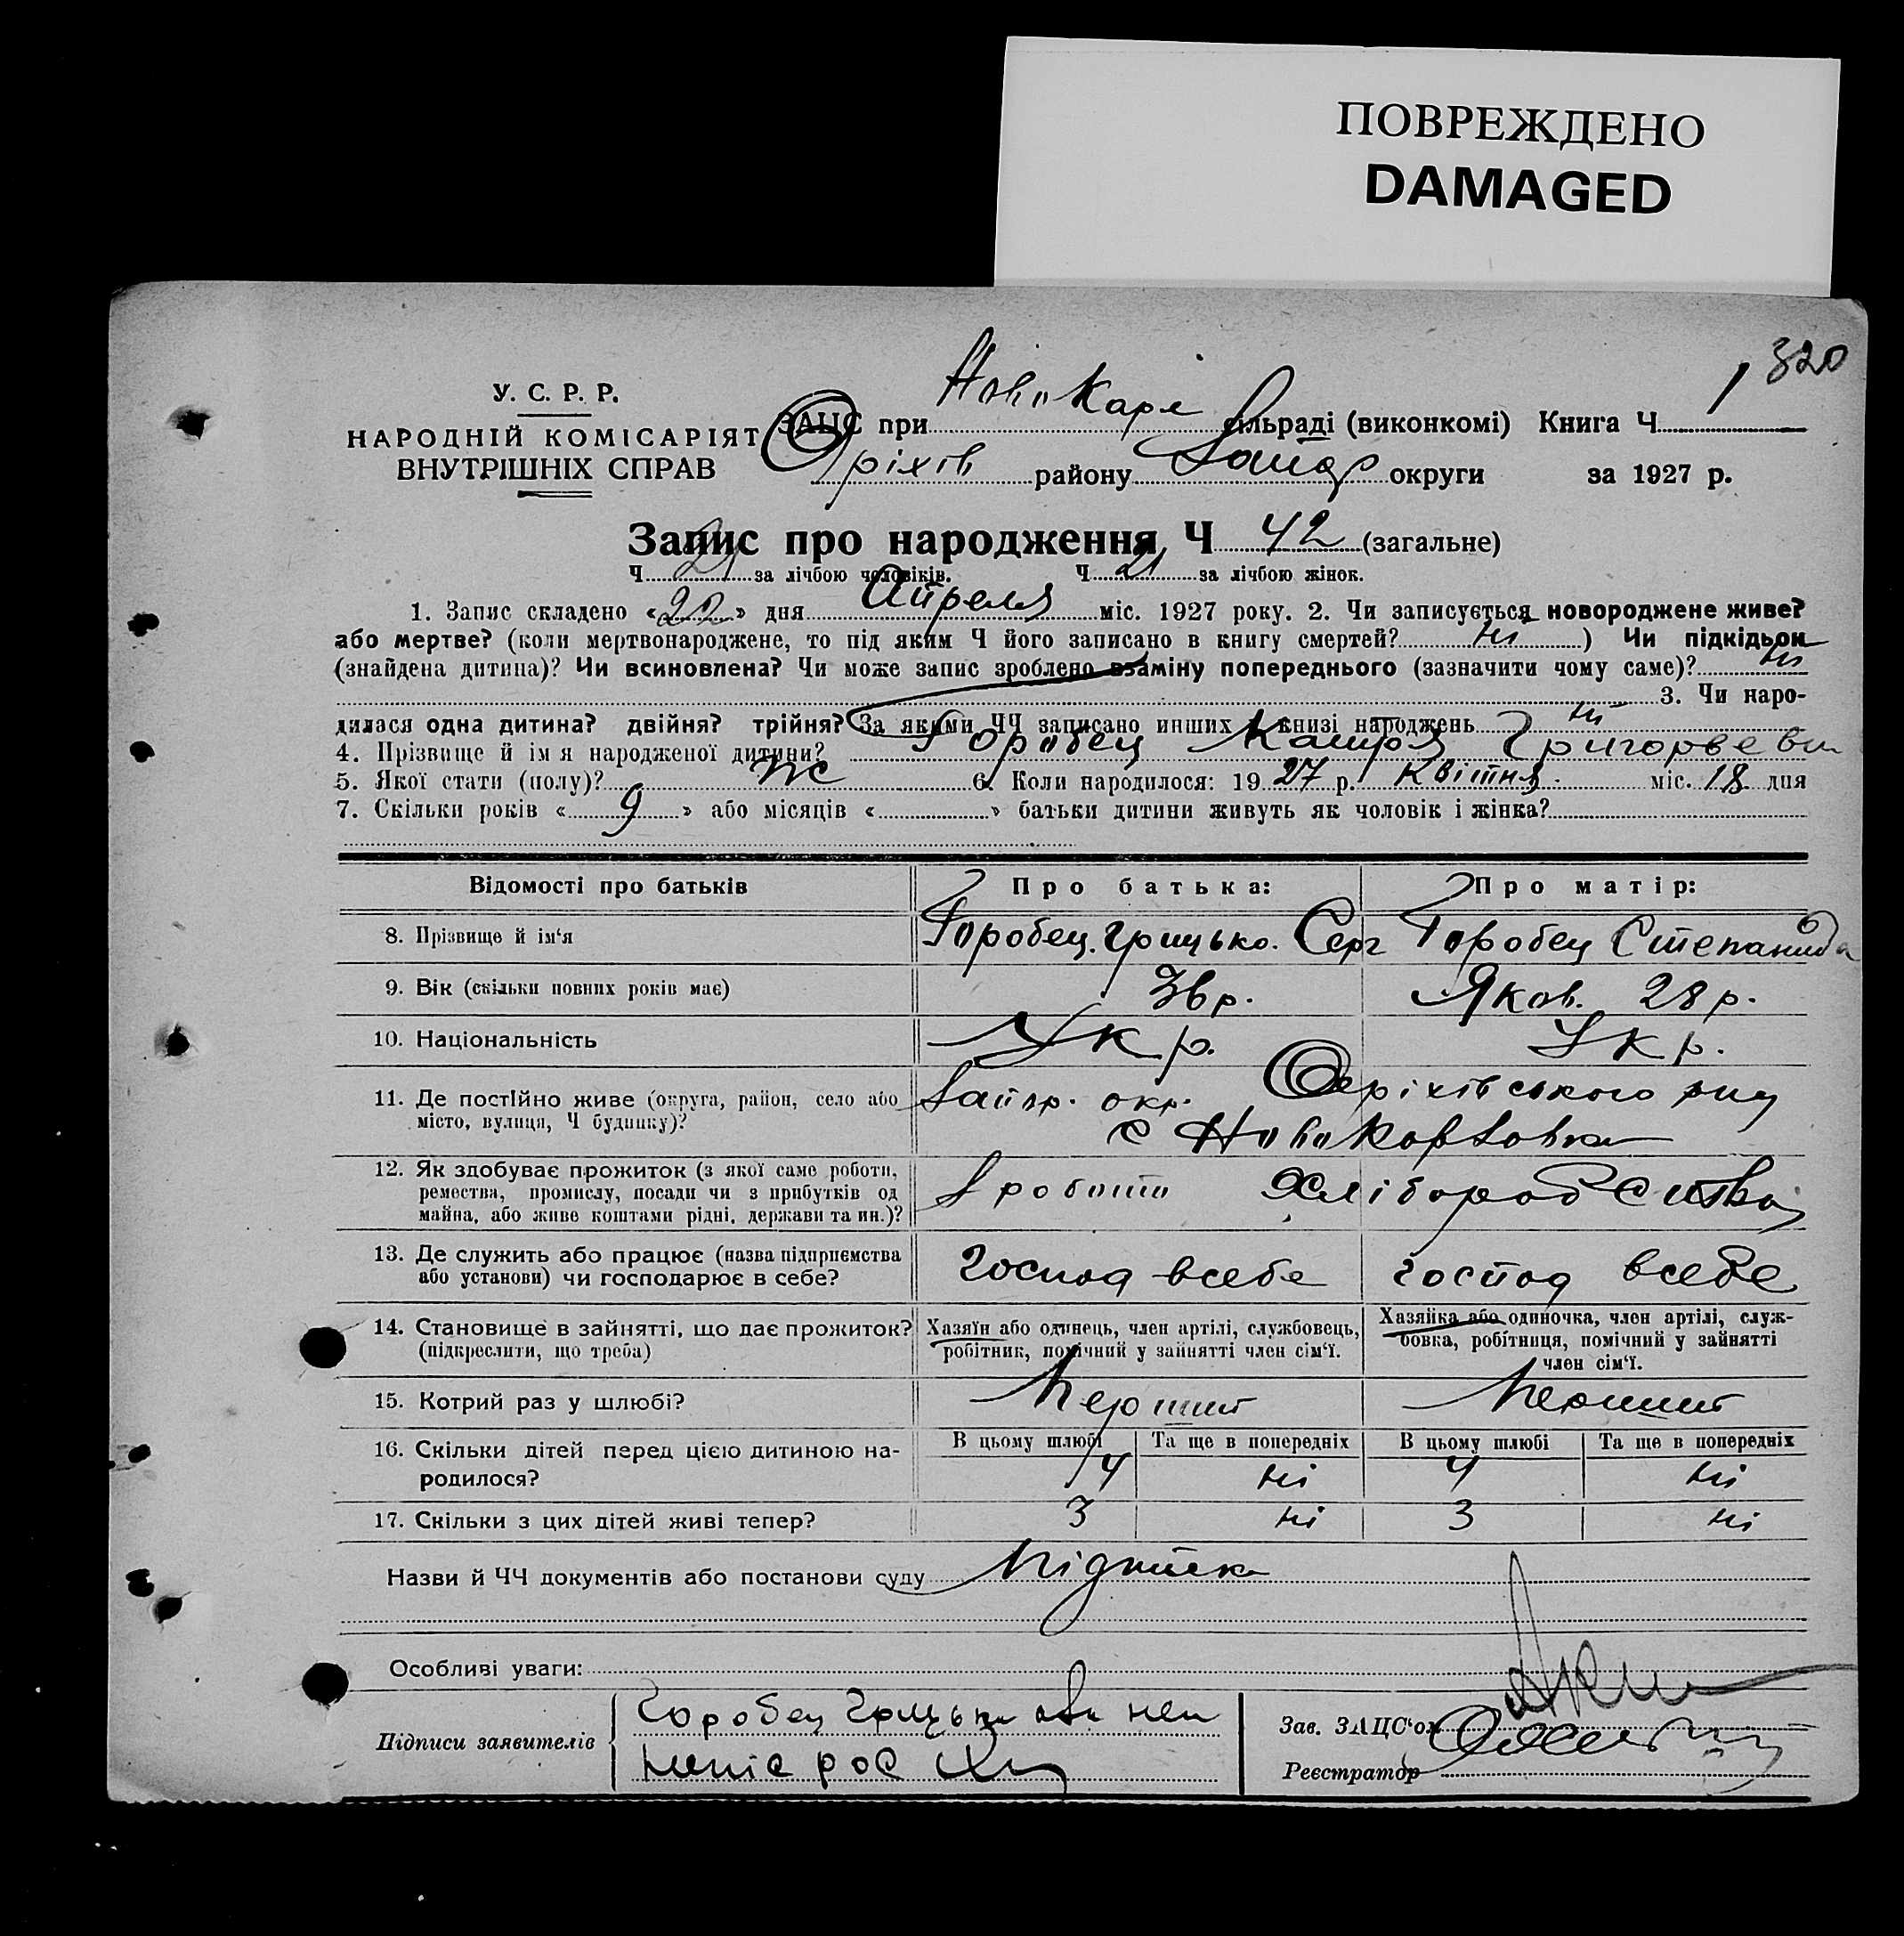 ПОВРЕЖДЕНО
DAMAGED
320
У. С. Р. Р.
НАРОДНІЙ КОМІСАРІЯТ
ВНУТРІШНІХ СПРАВ
ЗАЦС при НовоКарл сільраді (виконкомі) Книга Ч 1
Оріхів району Запор округи за 1927 р.
Запис про народження Ч 42 (загальне)
Ч 21 за лічбою чоловіків. Ч 21 за лічбою жінок.
1. Запис складено «22» дня Апреля міс. 1927 року. 2. Чи записується новороджене живе?
або мертве? (коли мертвонароджене, то під яким Ч його записано в книгу смертей? ні ) Чи підкідьок
(знайдена дитина)? Чи всиновлена? Чи може запис зроблено взаміну попереднього (зазначити чому саме)? ні
3. Чи наро-
дилася одна дитина? двійня? трійня? За якими ЧЧ записано инших в книзі народжень ні
4. Прізвище й ім я народженої дитини? Горобец Григорьев
5. Якої стати (полу)? ж 6. Коли народилося: 1927 р. Квітня міс. 18 дня
7. Скільки років « 9 » або місяців « » батьки дитини живуть як чоловік і жінка?
Відомості про батьків Про батька: Про матір:
8. Прізвище й ім'я Горобец. Грицько. Серг Горобец Степанида
9. Вік (скільки повних років має) 36 р. Яков. 28 р.
10. Національність Укр. Укр.
11. Де постійно живе (округа, район, село або Запор. окр. Оріхівського
місто, вулиця, Ч будинку)? с НовоКарловка
12. Як здобуває прожиток (з якої саме роботи, Зробота Хліборобства
ремества, промислу, посади чи з прибутків од
майна, або живе коштами рідні, держави та ин.)?
13. Де служить або працює (назва підприємства Господ всебе господ всебе
або установи) чи господарює в себе?
14. Становище в зайнятті, що дає прожиток? Хазяїн або одинець, член артілі, службовець, Хазяйка або одиночка, член артілі, служ-
(підкреслити, що треба) робітник, помічний у зайнятті член сім'ї. бовка, робітниця, помічний у зайнятті
член сім'ї.
15. Котрий раз у шлюбі? Перший Перший
16. Скільки дітей перед цією дитиною на- В цьому шлюбі Та ще в попередніх В цьому шлюбі Та ще в попередніх
родилося? 4 ні 4 ні
17. Скільки з цих дітей живі тепер? 3 ні 3 ні
Назви й ЧЧ документів або постанови суду Підписка
Особливі уваги:
Підписи заявителів Горобец Грицько
Зав. ЗАЦС'ом
Реєстратор